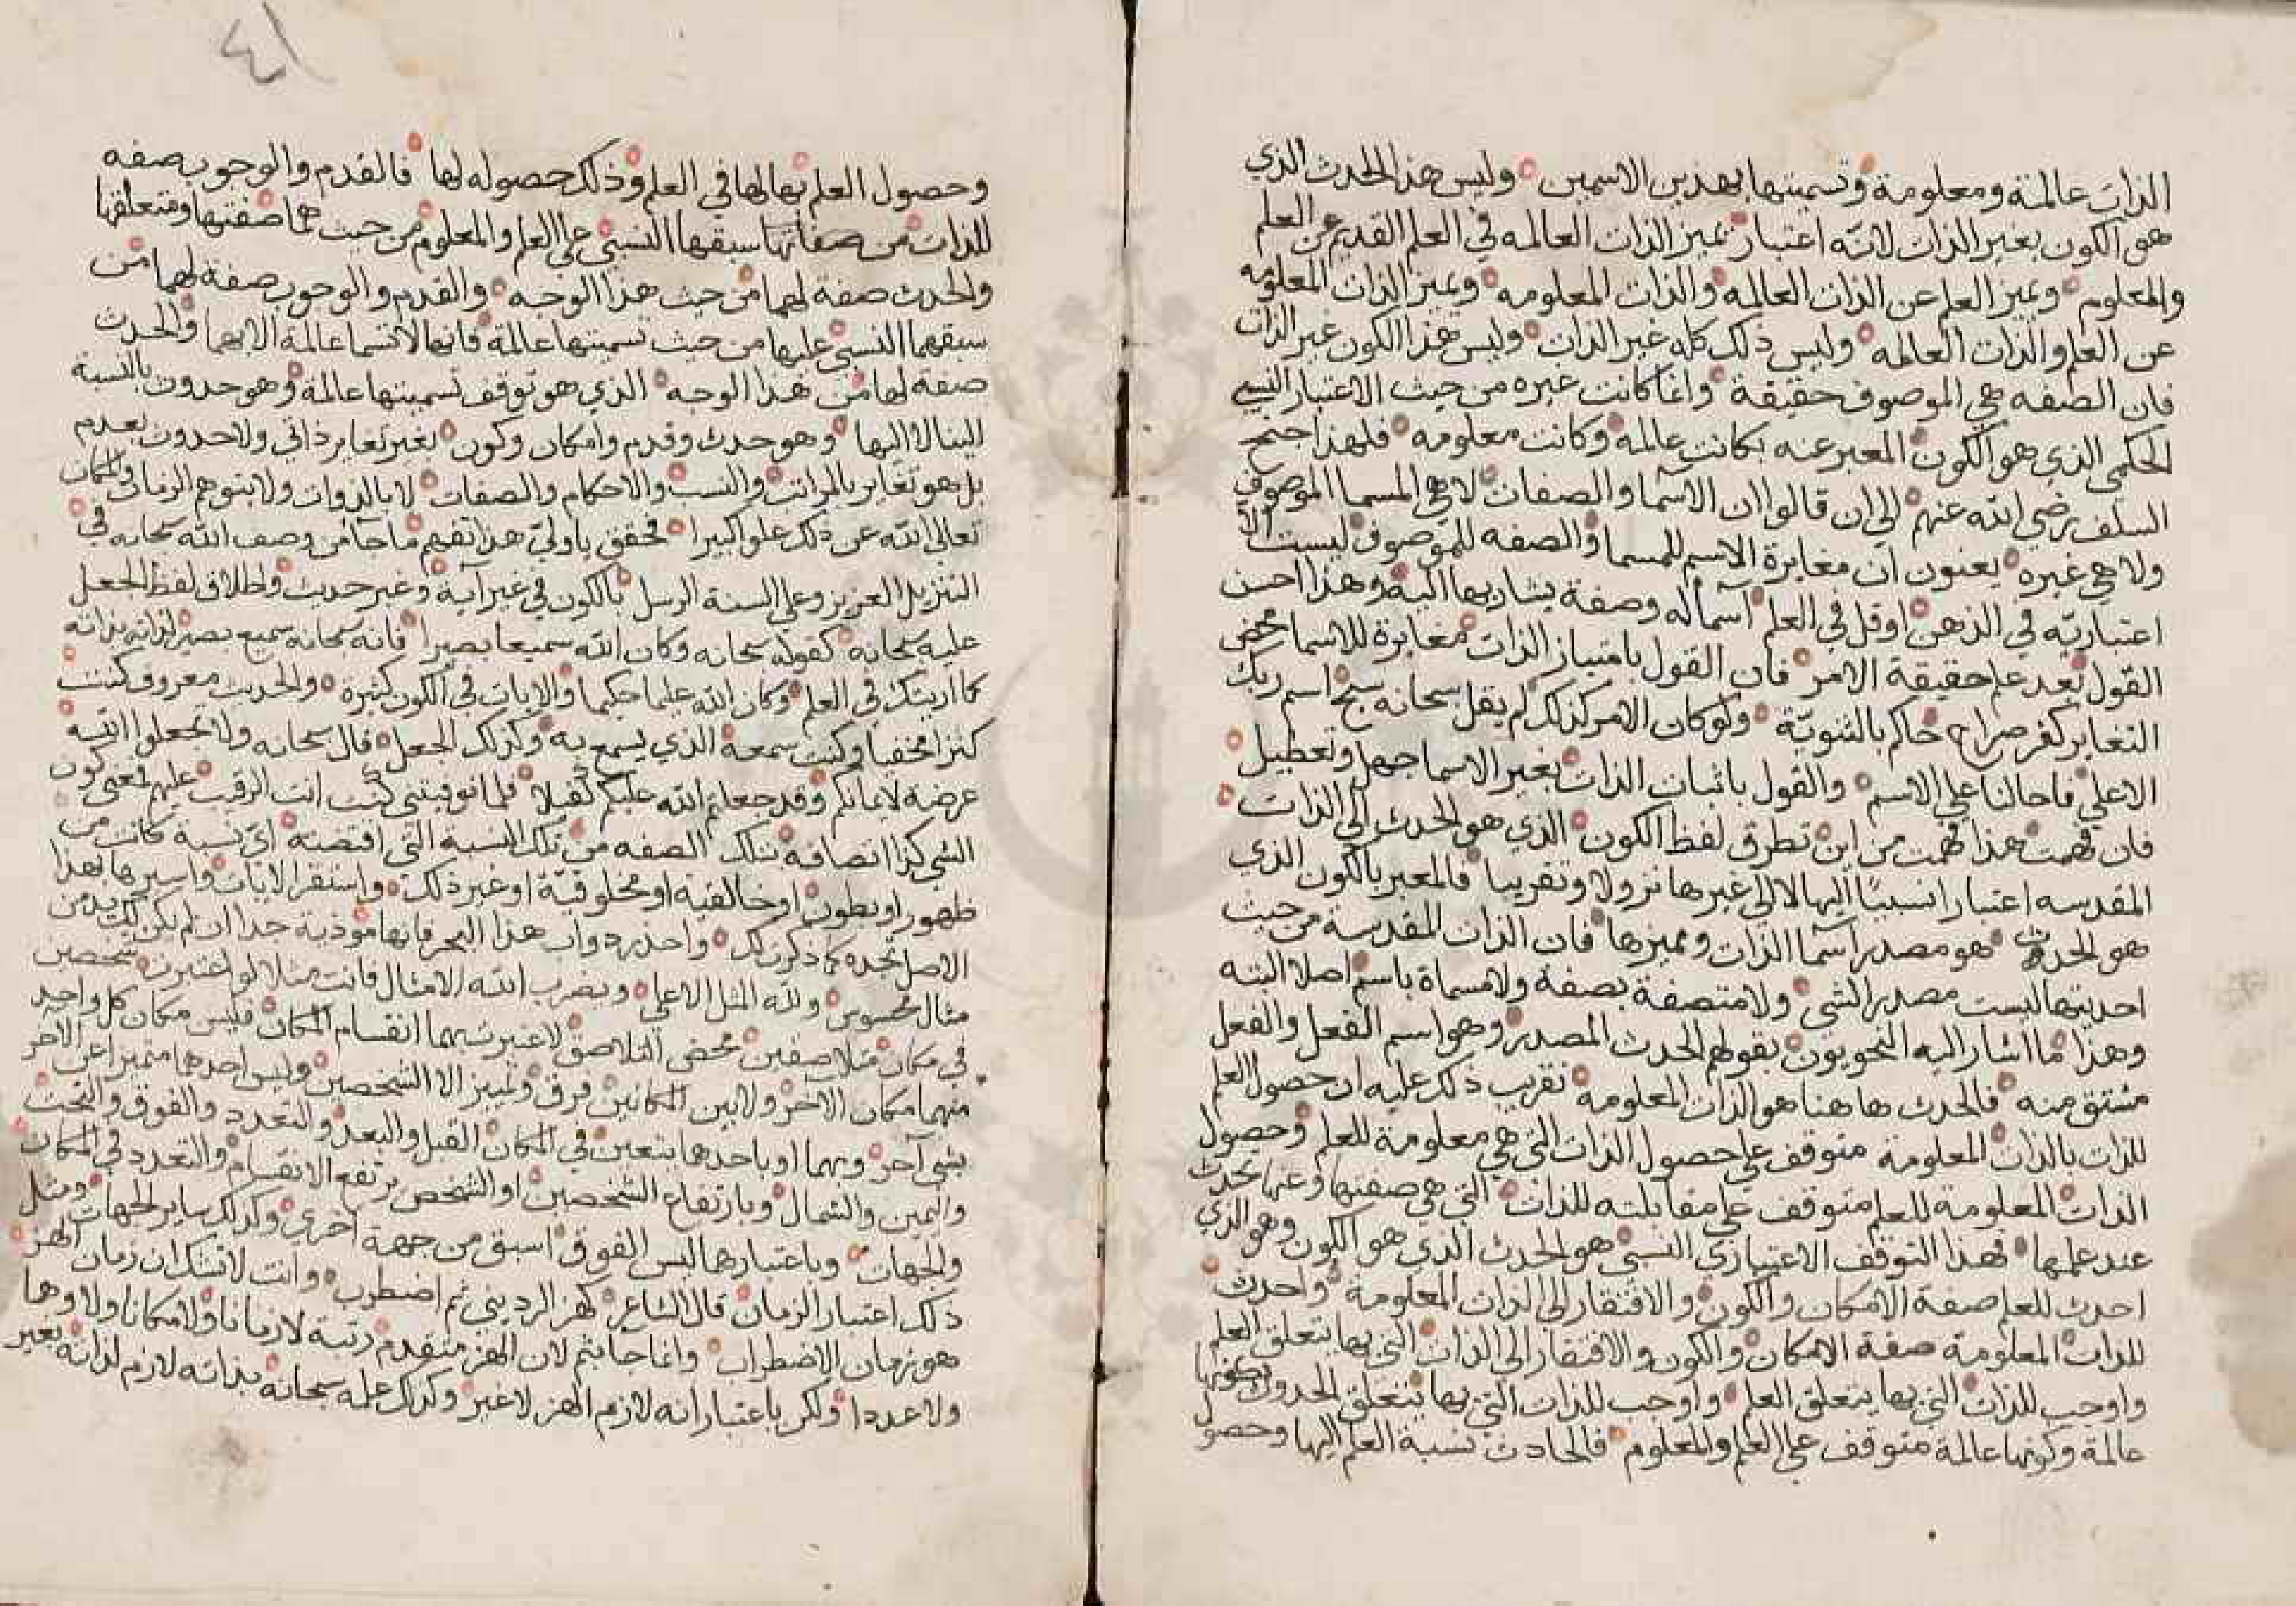 الذات عالمة ومعلومة وتسميتها بهذين الاسمين وليس هذا الحدث الذي
هو الكون بغير الذات لانه اعتبار تميز الذات العالمه في العلم القديم عن العلم
والمعلوم وتميز العلم عن الذات العالمه والذات المعلومه وتميز الذات المعلومه
عن العلم والذات العالمه وليس ذلك كله غير الذات وليس هذا الكون غير الذات
فان الصفه هي الموصوف حقيقة وانما كانت غيره من حيث الاعتبار النسبي
الحكمي الذي هو الكون المعبر عنه بكانت عالمه وكانت معلومه فلهذا جنح
السلف رضي الله عنهم الى ان قالوا ان الاسما والصفات لا هي المسما الموصوف
ولا هي غيره يعنون ان مغايرة الاسم للمسما والصفه للموصوف ليست الا
اعتباريه في الذهن او قل في العلم اسما له وصفة يشار بها اليه وهذا احسن
القول بعد علم حقيقة الامر فان القول بامتياز الذات مغايرة للاسما محض
التغاير كفر صراح حاكم بالثنوية ولو كان الامر كذلك لم يقل سبحانه سبح اسم ربك
الاعلى فاحالنا على الاسم والقول باثبات الذات بغير الاسما جهل وتعطيل
فان فهمت هذا فهمت من اين تطرق لفظ الكون الذي هو الحدث الى الذات
المقدسه اعتبارا نسبيا اليها لا الى غيرها نزولا وتقريبا فالمعبر بالكون الذي
هو الحدث هو مصدر اسما الذات ومميزها فان الذات المقدسة من حيث
احديتها ليست مصدر الشي ولا متصفة بصفة ولا مسماة باسم اصلا البته
وهذا ما اشار اليه النحويون بقولهم الحدث المصدر وهو اسم الفعل والفعل
مشتق منه فالحدث هاهنا هو الذات المعلومه تقريب ذلك عليه ان حصول العلم
للذات بالذات المعلومة متوقف على حصول الذات التي هي معلومة للعلم وحصول
الذات المعلومة للعلم متوقف على مقابلته للذات التي هي صفتها وعنها تحدث
عند علمها فهذا التوقف الاعتباري النسبي هو الحدث الذي هو الكون وهو الذي
احدث للعلم صفة الامكان والكون والافتقار الى الذات المعلومة واحدث
للذات المعلومة صفة الامكان والكون والافتقار الى الذات التي بها يتعلق العلم
واوجب للذات التي بها يتعلق العلم واوجب للذات التي بها يتعلق الحدوث بكونها
عالمة وكونها عالمة متوقف على العلم والمعلوم فالحادث نسبة العلم اليها وحصول
وحصول العلم بها لها في العلم وذلك حصوله لها فالقدم والوجوب صفه
للذات من صفاتها سبقها النسبي على العلم والمعلوم من حيث هما صفتها ومتعلقها
والحدث صفة لهما من حيث هذا الوجه والقدم والوجوب صفة لهما من
سبقهما النسبي عليها من حيث تسميتها عالمة فانها لا تسما عالمة الا بهما والحدث
صفة لها من هذا الوجه الذي هو توقف تسميتها عالمة وهو حدوث بالنسبة
الينا لا اليها وهو حدث وقدم وامكان وكون بغير تغاير ذاتي ولا حدوث بعدم
بل هو تغاير بالمراتب والنسب والاحكام والصفات لا بالذوات ولا بتوهم الزمان والمكان
تعالى الله عن ذلك علوا كبيرا فحقق ياولي هذا تفهم ما جا من وصف الله سبحانه في
التنزيل العزيز وعلى السنة الرسل بالكون في غير آية وغير حديث واطلاق لفظ الجعل
عليه سبحانه كقوله سبحانه وكان الله سميعا بصيرا فانه سبحانه سميع بصير لذاته بذاته
كما اريتك في العلم وكان الله عليما حكيما والايات في الكون كثيرة والحديث معروف كنت
كنزا مخفيا وكنت سمعه الذي يسمع به وكذلك الجعل قال سبحانه ولا تجعلوا الله
عرضة لايمانكم وقد جعلتم الله عليكم كفيلا فلما توفيتني كنت انت الرقيب عليهم فمعنى كون
الشي كذا اتصافه بتلك الصفه من تلك النسبة التي اقتضته اي نسبة كانت من
ظهور او بطون او خالقية او مخلوقية او غير ذلك واستقر الايات واسبرها بهذا
الاصل تجده كما ذكرت لك واحذر دواب هذا البحر فانها موذية جدا ان لم يكن لك بد من
مثال محسوس ولله المثل الاعلى ويضرب الله الامثال فانت مثلا لو اعتبرت شخصين
في مكان متلاصقين محض التلاصق لاعتبرت بهما انقسام المكان فليس مكان كل واحد
منهما مكان الاخر ولا بين المكانين فرق وتمييز الا الشخصين وليس احدهما متميزا عن الاخر
بشي آخر وبهما او باحدهما يتعين في المكان القبل والبعد والتعدد والفوق والتحت
واليمين والشمال وبارتفاع الشخصين او الشخص يرتفع الانقسام والتعدد في المكان
والجهات وباعتبارها ليس الفوق اسبق من جهة اخرى وكذلك ساير الجهات ومثل
ذلك اعتبار الزمان قال الشاعر كهز الرديني ثم اضطرب وانت لا تشك ان زمان الهز
هو زمان الاضطراب وانما جا بثم لان الهز متقدم رتبة لا زمانا ولا مكانا ولا وهما
ولا عددا ولكن باعتبار انه لازم الهز لا غير وكذلك علمه سبحانه بذاته لازم لذاته بغير